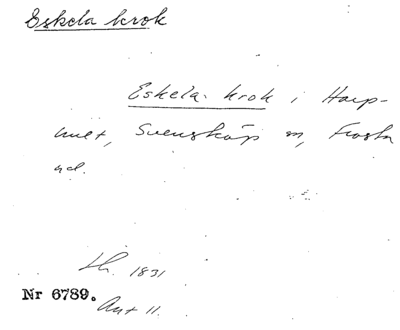 Eskela krok
Eskela krok i Harp-
hult, Svensköp sn, Frosta
hd.
Lh. 1831
Nr 6789.
Ant 11.